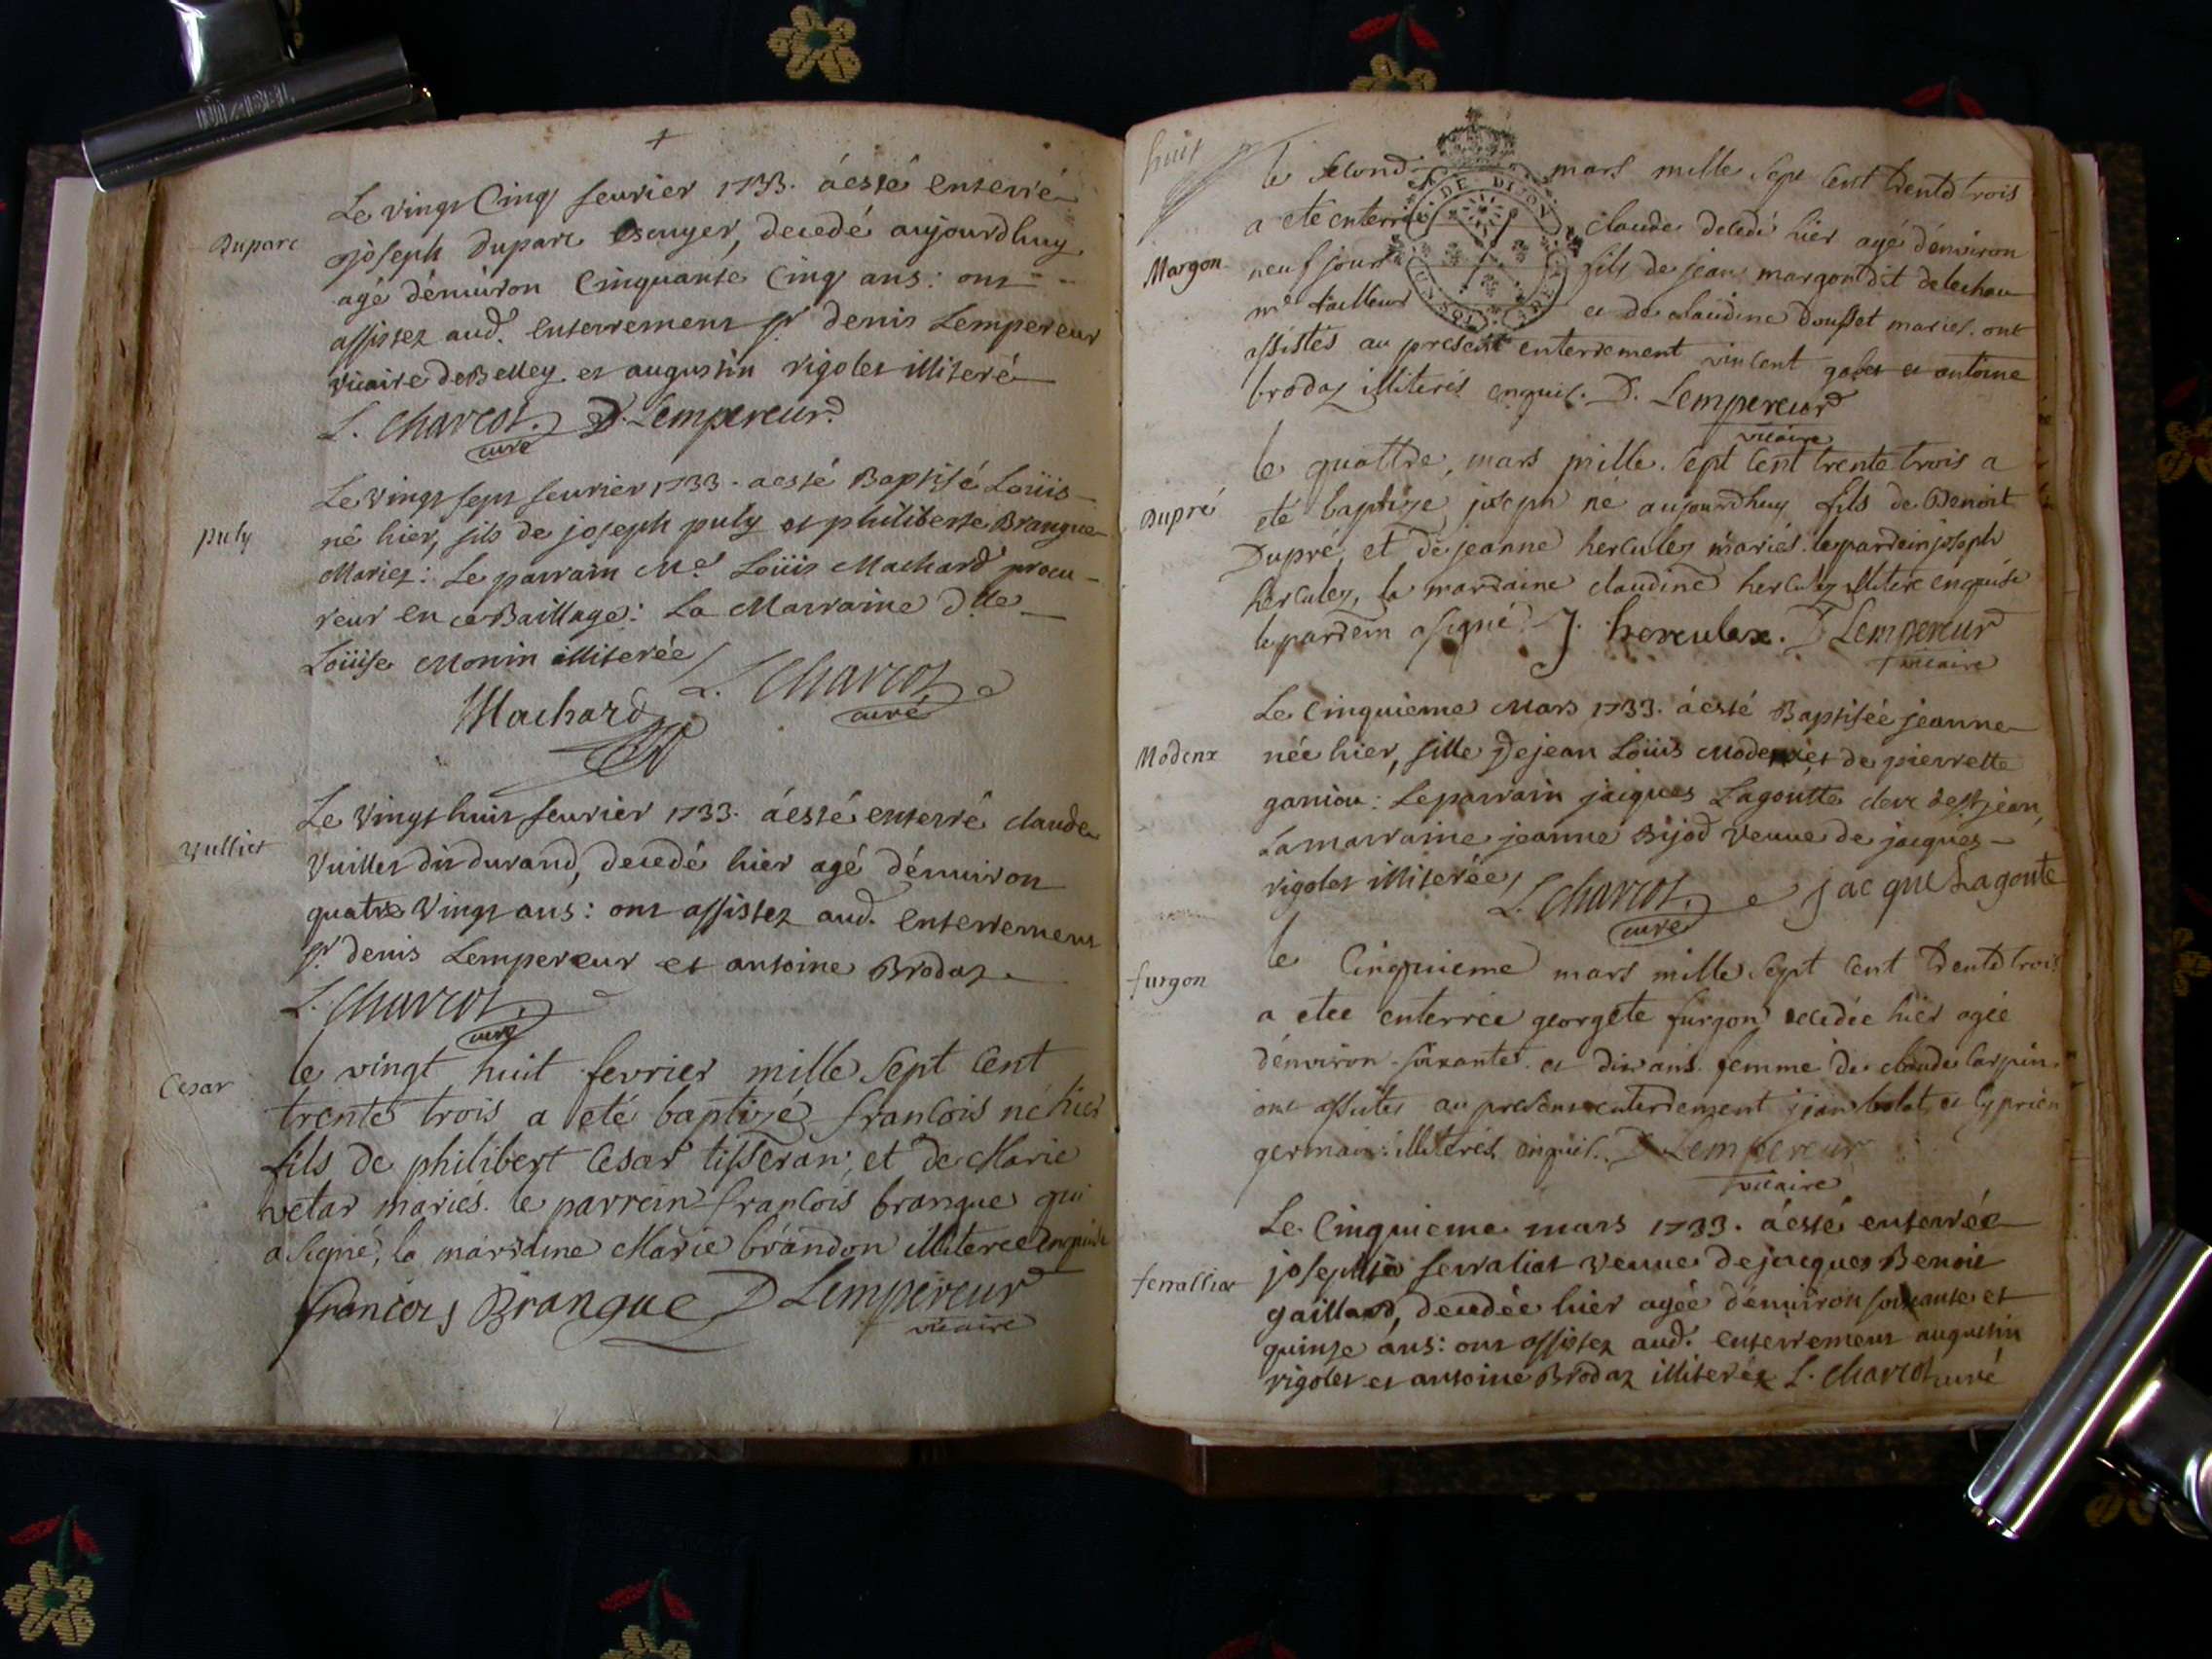 Duparc
Le vingt Cinq feurier 1733. á esté enterré
joseph Duparc Escuyer, decedé aujourdhuy
agé d'enuiron Cinquante Cinq ans: ont
assistez aud. enterrement Sr. denis Lempereur
vicaire de Belley et augustin rigolet illiteré
L. Charcot. D. Lempereur
curé
puly
Le vingt sept feurier 1733. a esté Baptisé Loüis
né hier, fils de joseph puly et philiberte Brangue
Mariez: Le parrain Me. Loüis Machard procu-
reur en ce Baillage: La Marraine dlle
Loüise Monin illiterée
L. Charcot
Machard curé
vulliet
Le vingt huit feurier 1733. á esté enterré claude
Vuillet dit durand, decedé hier agé d'enuiron
quatre vingt ans: ont assistez aud. enterrement
Sr. denis Lempereur et antoine Brodaz
L. Charcot.
curé
Cesar
le vingt huit fevrier mille sept cent
trente trois a eté baptizé francois né hier
fils de philibert Cesar tisseran, et de Marie
vetar mariés. le parrein francois brangue qui
a signé, la marraine Marie brandon illiteree enquise
francois Brangue D Lempereur
vicaire
huit
le second mars mille sept cent trente trois
a ete enterré claude decedé hier agé d'environ
Margon
neuf jours fils de jean margon dit delechau
me tailleur et de claudine dousset mariés. ont
assistés au present enterrement vincent et antoine
brodaz illiterés enquis. D. Lempereur
vicaire
DE DIJON
le quattre, mars mille sept cent trente trois a
Dupré
eté baptize joseph né aujourdhuy fils de Benoit
Dupré, et de jeanne herculez mariés. le parrein joseph
herculez, la marraine claudine herculez illitere enquise
le parrein a signé J. herculex. D Lempereur
vicaire
Le Cinquieme Mars 1733. á esté Baptisée jeanne
Modenx
née hier, fille de jean Loüis et de pierrette
ganiou: Le parrain jaiques Lagoutte clerc de St jean,
La marraine jeanne Bijod veuue de jacques
rigolet illiterée
L. Charcot. jacque Lagoute
curé
le Cinquieme mars mille sept cent trente trois
furgon
a etee enterrée georgete furgon decedée hier agée
d'environ soixante et dix ans femme de claude carpin
ont assistés au present enterrement jean bolat et cyprien
germain illiterés enquis. D Lempereur
vicaire
Le Cinquieme mars 1733. á esté enterrée
ferralliat
josephte ferraliat veuue de jacques Benoit
gaillard, decedée hier agée d'enuiron soixante et
quinze ans: ont assistez aud. enterrement augustin
rigolet et antoine Brodaz illiteréz L. Charcot curé